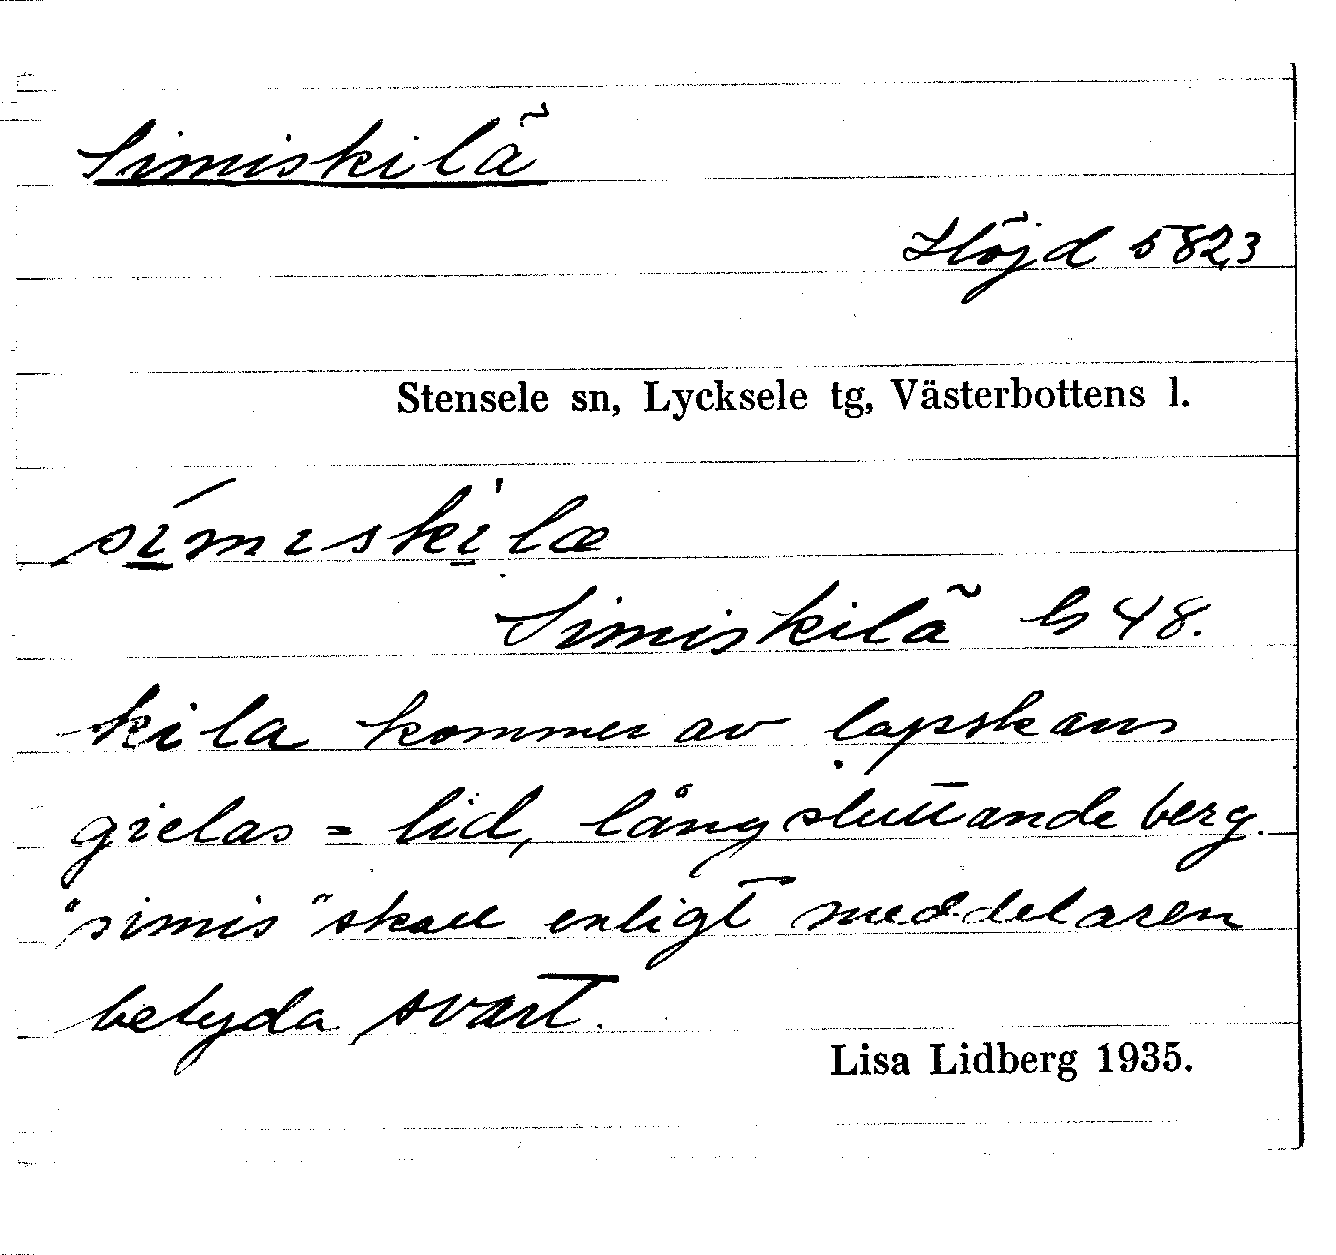 Simiskilä
Höjd 582,3
Stensele sn, Lycksele tg, Västerbottens l.
símιskilæ
Simiskilä G 48.
kila kommer av lapskans
gielas = lid, långsluttande berg.
"simis" skall enligt meddelaren
betyda svart.
Lisa Lidberg 1935.